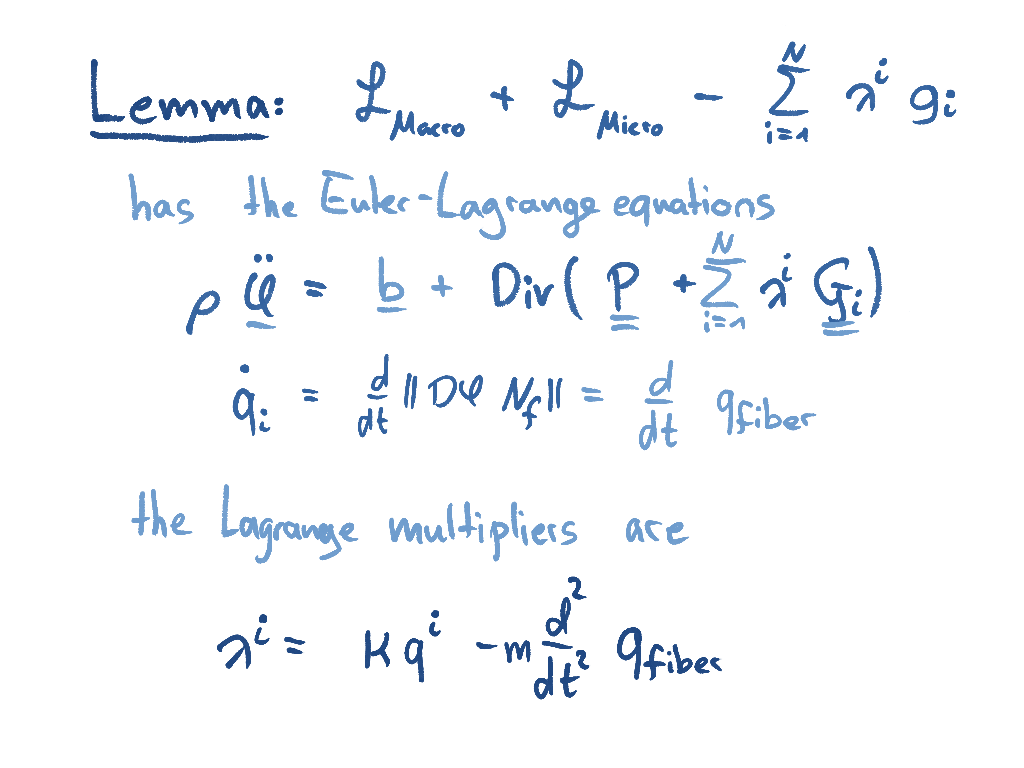 Lemma: ℒ_Macro + ℒ_Micro - ∑_{i=1}^{N} λ^i g_i
has the Euler-Lagrange equations
ρ φ̈ = b + Div( P + ∑_{i=1}^{N} λ^i G_i )
q̇_i = d/dt || Dφ N_f || = d/dt q_fiber
the Lagrange multipliers are
λ^i = K q^i - m d²/dt² q_fiber